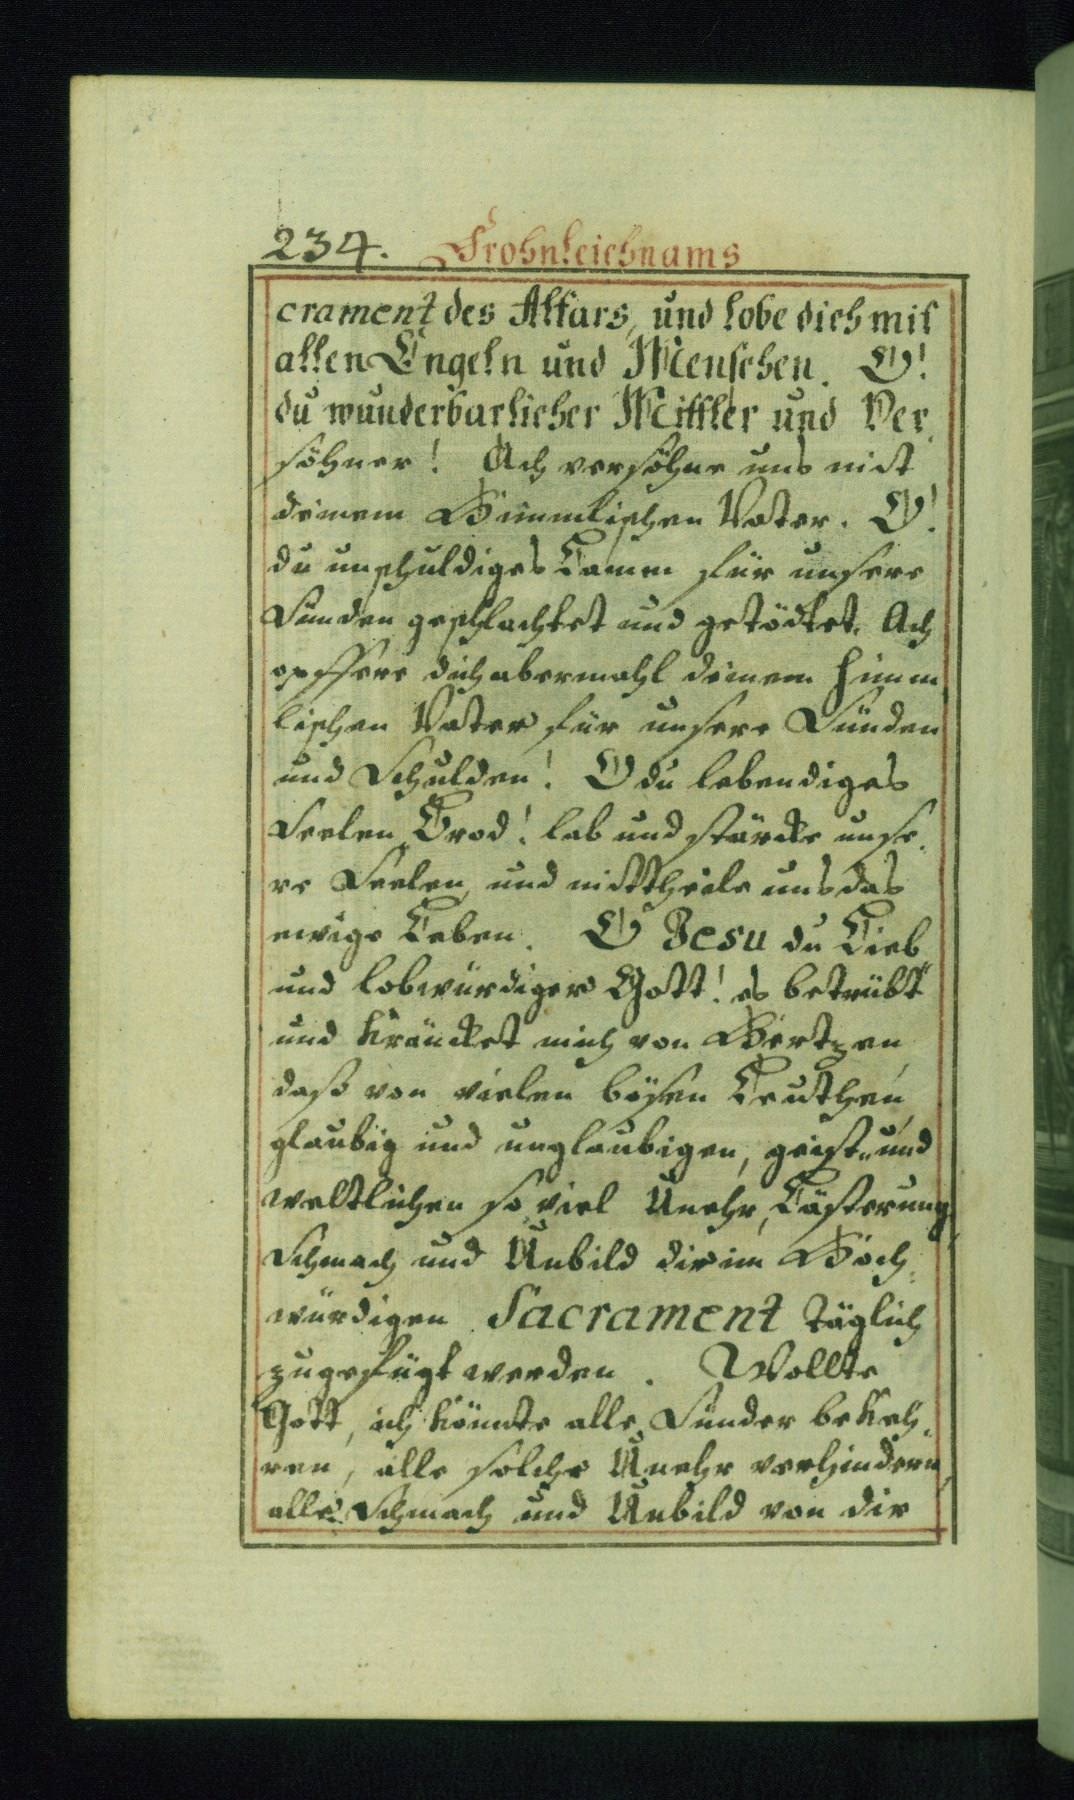 234. Frohnleichnams
crament des Altars, und lobe dich mit
allen Engeln und Menschen. O!
du wunderbarlicher Mittler und Ver,
söhner! Ach versöhne uns mit
deinem Himmlischen Vater. O!
du unschuldiges Lamm für unsere
Sünden geschlachtet und getödtet. Ach
opffere dich abermahl deinem himm,
lischen Vater für unsere Sünden
und Schulden! O du lebendiges
Seelen Brod! lab und stärcke unse,
re Seelen, und mittheile uns das
ewige Leben. O Jesu du Lieb
und lobwürdiger Gott! es betrübt
und kräncket mich von Hertzen
daß von vielen bösen Leuthen
glaubig und unglaubigen, geist„ und
weltlichen so viel Unehr, Lästerung,
Schmach und Unbild dir im Hoch,
würdigen Sacrament täglich
zugefügt werden. Wollte
Gott, ich könnte alle Sünder bekeh,
ren, alle solche Unehr verhindern,
alle Schmach und Unbild von dir